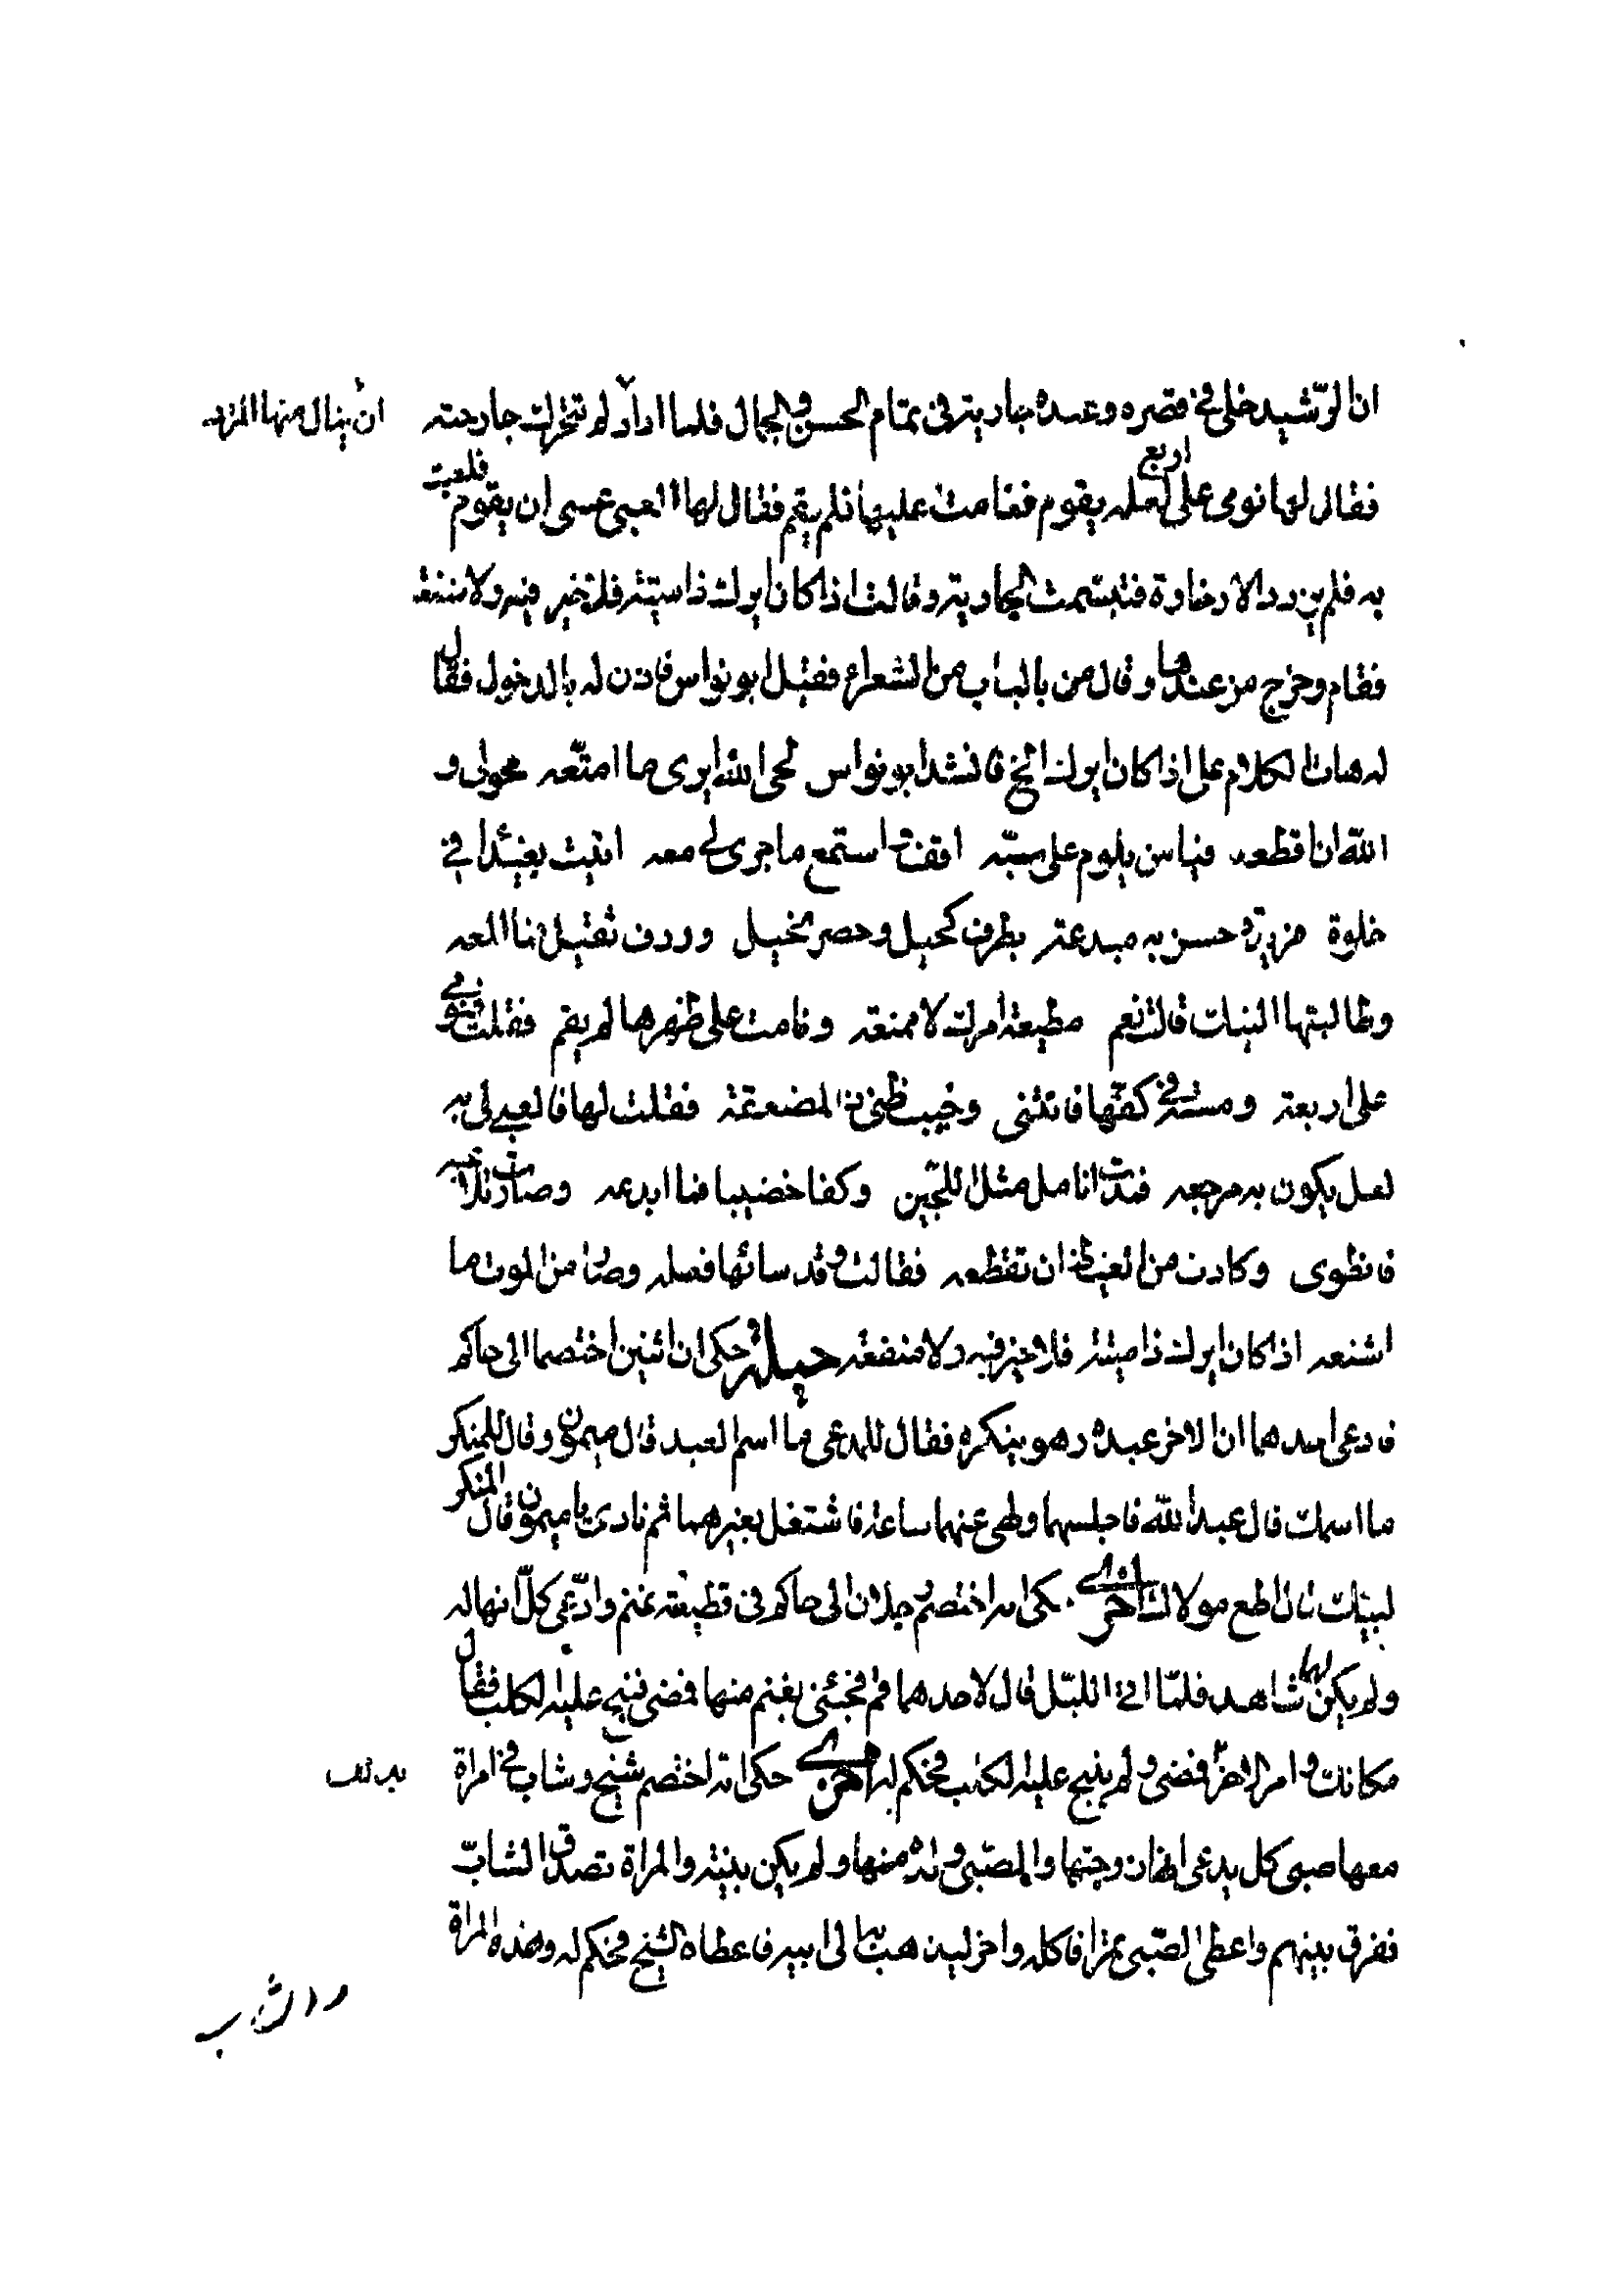 ان الرّشيد خلى في قصره وعنده جارية في تمام الحسن والجمال فلما اراد لم تتحرك جارحته ان ينال منها المزيد
فقال لها نومي على اربع لعله يقوم فقامت عليها فلم يقم فقال لها العبي عسى ان يقوم فلعبت
به فلم يزدد الا رخاوة فتبسمت الجارية وقالت اذا كان ايرك ذا ميتة فلا خير فيه ولا منفعة
فقام وخرج من عندها وقال من بالباب من الشعراء فقيل ابو نواس فاذن له بالدخول فقال
له هات الكلام على اذا كان ايرك الخ فانشد ابو نواس لحى الله ايرى ما امتّعه محولى و
الله ان اقطعه فيا من يلوم على سبّه افق استمع ما جرى لي معه اتيت بغيدا في
خلوة فريدة حسن به مبدعه بطرف كحيل وخصر نحيل وردف ثقيل فما المعه
وطالبتها النيك قالت نعم مطيعة امرك لا ممنعه ونامت على ظهرها لم يقم فقلت فنومي
على اربعه ومسته في كفها فانثنى وخيب ظني المضعقة فقلت لها فالعبي لي به
لعل يكون به مرجعه فمدت انامل مثل اللجين وكفا خضيبا فما ابدعه وصارت تلاعبه
فانطوى وكادت من الغيظ ان تقطعه فقالت وقد سائها فعله وصار من الموت ما
اشنعه اذا كان ايرك ذا ميتة فلا خير فيه ولا منفعه حيلة حكى ان اثنين اختصما الى حاكم
فادعى احدهما ان الاخر عبده وهو ينكره فقال للمدعى ما اسم العبد قال ميمون وقال للمنكر
ما اسمك قال عبد الله فاجلسهما ولهى عنهما ساعة فاشتغل بغيرهما ثم نادى يا ميمون قال المنكر
لبيك قال اطع مولاك اخرى حكى انه اختصم رجلان الى حاكم في قطيعة غنم وادّعى كلّ انها له
ولم يكن لهما شاهد فلمّا اتى الليل قال لاحدهما قم فجئنى بغنم منها فمضى فنبح عليه الكلب فقال
مكانك وامر الاخر فمضى ولم ينبح عليه الكلب فحكم له اخرى حكى انه اختصم شيخ وشاب في امراة
معها صبى كل يدعى انها زوجتها والصبى ولده منها ولم يكن بينة والمراة تصدق الشابّ
ففرق بينهم واعطى الصّبى تمرا فاكله واخر ليذهب بها الى ابيه فاعطاه الشيخ فحكم له وهذه المراة
والشاب